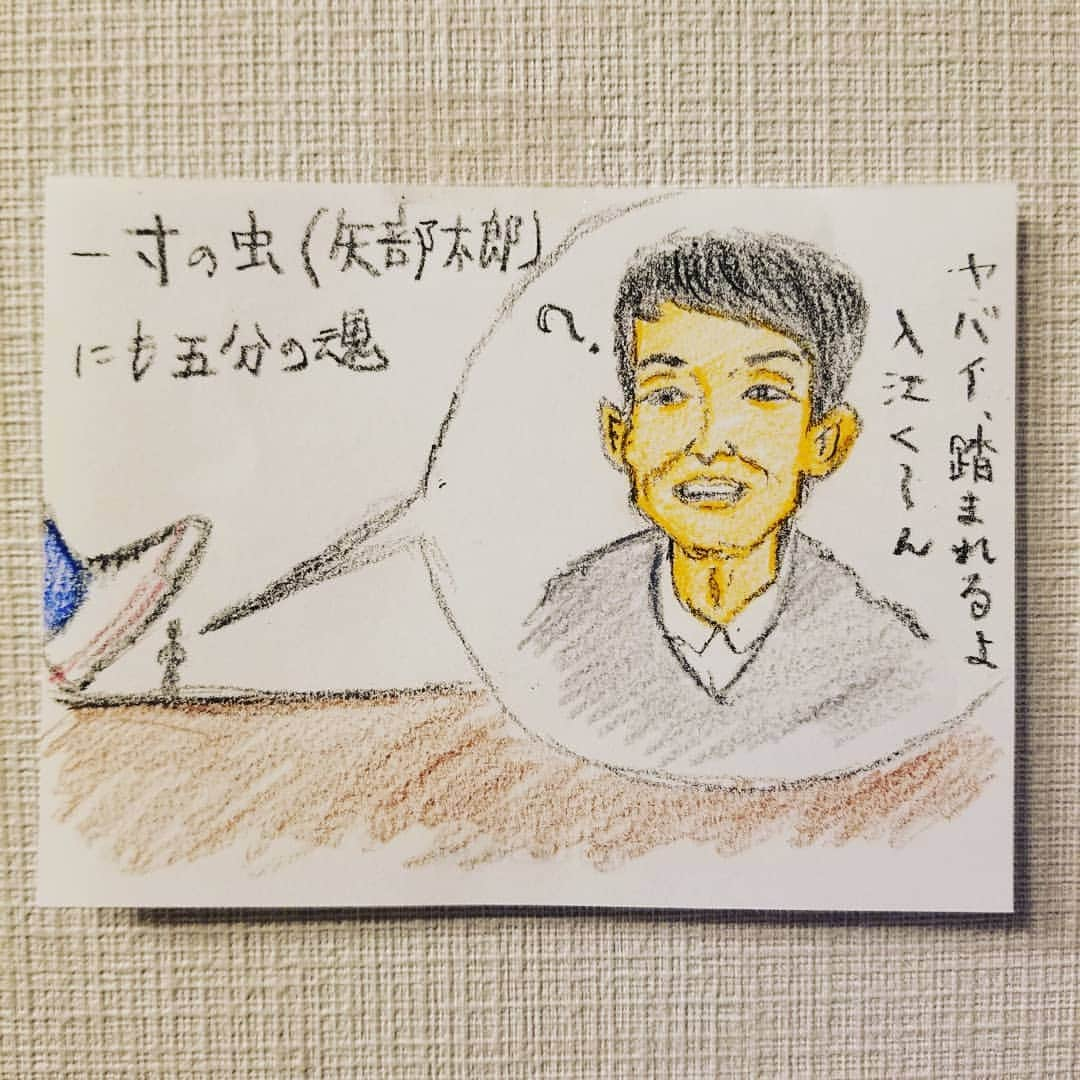 一寸の虫(矢部太郎)
にも五分の魂
?
ヤバイ、踏まれるよ
入江く〜ん